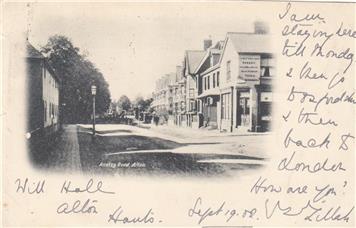 I am
staying here
till Monday
& then go
to
& then
back to
London
How are you?
Zillah
Anstey Road, Alton.
Will Hall
Alton
Hants.
Sept. 19. 08.